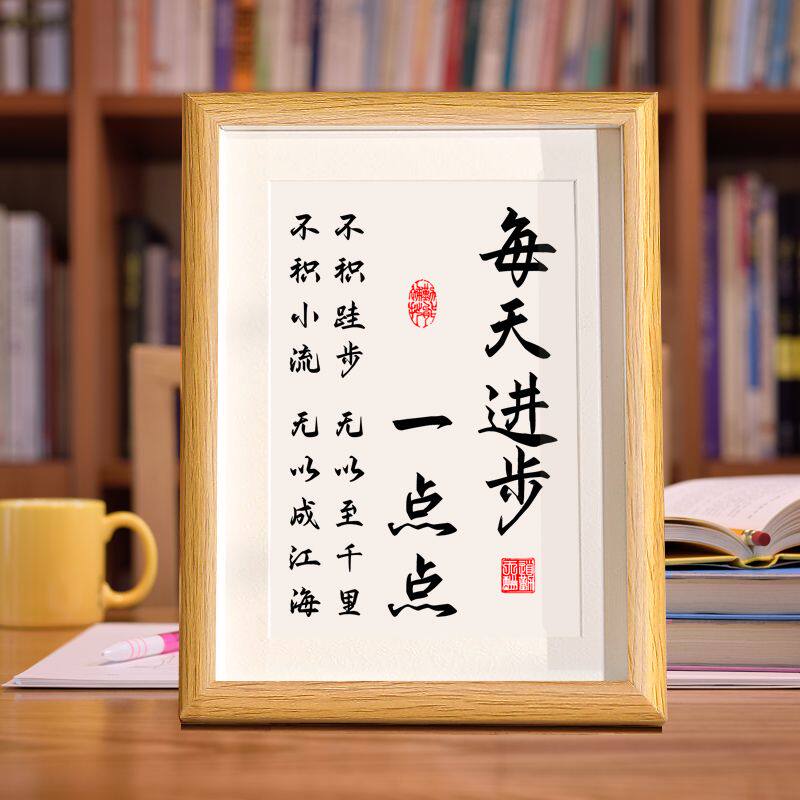 每天进步
一点点
不积跬步 无以至千里
不积小流 无以成江海
天道酬勤